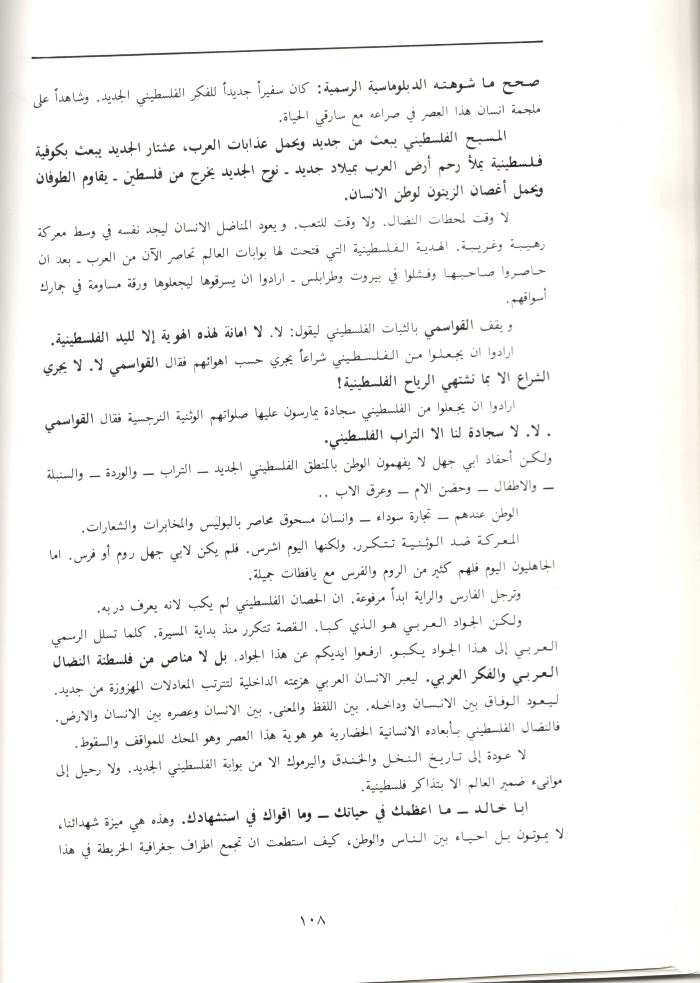 صحح ما شوهته الدبلوماسية الرسمية: كان سفيراً جديداً للفكر الفلسطيني الجديد. وشاهداً على
ملحمة انسان هذا العصر في صراعه مع سارقي الحياة.
المسيح الفلسطيني يبعث من جديد ويحمل عذابات العرب، عشتار الجديد يبعث بكوفية
فلسطينية يملأ رحم أرض العرب بميلاد جديد ـ نوح الجديد يخرج من فلسطين ـ يقاوم الطوفان
ويحمل أغصان الزيتون لوطن الانسان.
لا وقت لمحطات النضال. ولا وقت للتعب. ويعود المناضل الانسان ليجد نفسه في وسط معركة
رهيبة وغريبة. الهدية الفلسطينية التي فتحت لها بوابات العالم تحاصر الآن من العرب ـ بعد ان
حاصروا صاحبها وفشلوا في بيروت وطرابلس ـ ارادوا ان يسرقوها ليجعلوها ورقة مساومة في جمارك
أسواقهم.
ويقف القواسمي بالثبات الفلسطيني ليقول: لا. لا امانة لهذه الهوية إلا لليد الفلسطينية.
ارادوا ان يجعلوا من الفلسطيني شراعاً يجري حسب اهوائهم فقال القواسمي لا. لا يجري
الشراع الا بما تشتهي الرياح الفلسطينية!
ارادوا ان يجعلوا من الفلسطيني سجادة يمارسون عليها صلواتهم الوثنية النرجسية فقال القواسمي
. لا. لا سجادة لنا الا التراب الفلسطيني.
ولكن أحفاد ابي جهل لا يفهمون الوطن بالمنطق الفلسطيني الجديد ــ التراب ــ والوردة ــ والسنبلة
ــ والاطفال ــ وحضن الام ــ وعرق الاب ..
الوطن عندهم ــ تجارة سوداء ــ وانسان مسحوق محاصر بالبوليس والمخابرات والشعارات.
المعركة ضد الوثنية تتكرر. ولكنها اليوم اشرس. فلم يكن لابي جهل روم أو فرس. اما
الجاهليون اليوم فلهم كثير من الروم والفرس مع يافطات جميلة.
وترجل الفارس والراية ابداً مرفوعة. ان الحصان الفلسطيني لم يكب لانه يعرف دربه.
ولكن الجواد العربي هو الذي كبا. القصة تتكرر منذ بداية المسيرة. كلما تسلل الرسمي
العربي إلى هذا الجواد يكبو. ارفعوا ايديكم عن هذا الجواد. بل لا مناص من فلسطنة النضال
العربي والفكر العربي. ليعبر الانسان العربي هزيمته الداخلية لتترتب المعادلات المهزوزة من جديد.
ليعود الوفاق بين الانسان وداخله. بين اللفظ والمعنى. بين الانسان وعصره بين الانسان والارض.
فالنضال الفلسطيني بأبعاده الانسانية الحضارية هو هوية هذا العصر وهو المحك للمواقف والسقوط.
لا عودة إلى تاريخ النخل والخندق واليرموك الا من بوابة الفلسطيني الجديد. ولا رحيل إلى
موانىء ضمير العالم الا بتذاكر فلسطينية.
ابا خالد ــ ما اعظمك في حياتك ــ وما اقواك في استشهادك. وهذه هي ميزة شهدائنا،
لا يموتون بل احياء بين الناس والوطن، كيف استطعت ان تجمع اطراف جغرافية الخريطة في هذا
١٠٨